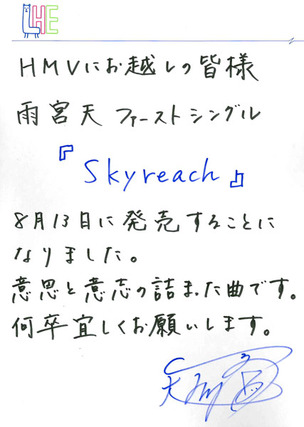 LHE
HMVにお越しの皆様
雨宮天 ファーストシングル
『Skyreach』
8月13日に発売することに
なりました。
意思と意志の詰まった曲です。
何卒宜しくお願いします。